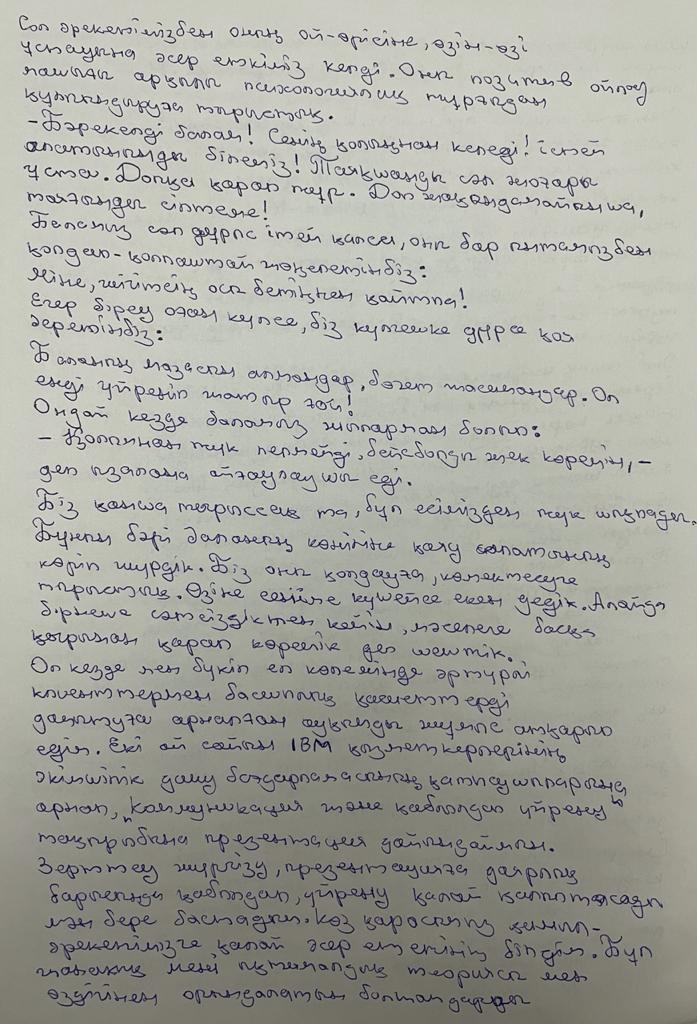 Сол әрекетімізбен оның ой-өрісіне, өзін-өзі
ұстауына әсер еткіміз келді. Оны позитив ойлау
машығы арқылы психологиялық тұрғыдан
құтқындыруға тырыстық.
- Бәрекелді балам! Сенің қолыңнан келеді! істей
алатыныңды білеміз! Таяқшаңды сәл жоғары
ұста. Допқа қарап тұр. Доп жақындамайынша,
таяғыңды сілтеме!
Баламыз сәл дұрыс істей қалса, оны бар ынтамызбен
қолдап-қолпаштай жөнелетінбіз:
Міне, жігітсің осы бетіңнен қайтпа!
Егер біреу оған күлсе, біз күлкішке дүрсе қоя
беретінбіз:
Баланың мазасын алмаңдар, бөгет жасамаңдар. Ол
енді үйреніп жатыр ғой!
Ондай кезде баламыз жыламсап болып:
- Қолымнан түк келмейді, бейсболды жек көремін, -
деп ызалана айғаулаушы еді.
Біз қанша тырыссақ та, бұл есімізден түк шықпады.
Бұның бәрі баланың көңіліне қаяу салатының
көріп жүрдік. Біз оны қолдауға, көмектесуге
тырыстық. Өзіне сенімі күшейсе екен дедік. Алайда
бірнеше сәтсіздіктен кейін, мәселеге басқа
қырынан қарап көрелік деп шештік.
Ол кезде мен бүкіл ел көлемінде әртүрлі
клиенттермен басшылық қасиеттерді
дамытуға арналған ауқымды жұмыс атқарып
едім. Екі ай сайын IBM қызметкерлерінің
әкімшілік даму бағдарламасының қатысушыларына
арнап, "Коммуникация және қабылдап үйрену"
тақырыбына презентация дайындаймын.
Зерттеу жүргізу, презентацияға даярлық
барысында қабылдап, үйрену қалай қалыптасады
мән бере бастадым. Көз қарасымыз қимыл-
әрекетімізге қалай әсер ететінің білдім. Бұл
жағынық мені ықтималдық теориясы мен
өздігінен орындалатын болжамдарды